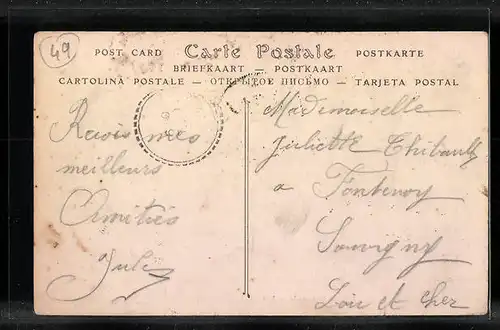 49
POST CARD Carte Postale POSTKARTE
BRIEFKAART — POSTKAART
CARTOLINA POSTALE — ОТКРЫТОК ПИСЬМО — TARJETA POSTAL
mes
meilleurs
Amitiés
Mademoiselle
Juliette Thibault
a Fontenoy
Souvigny
Loir et cher